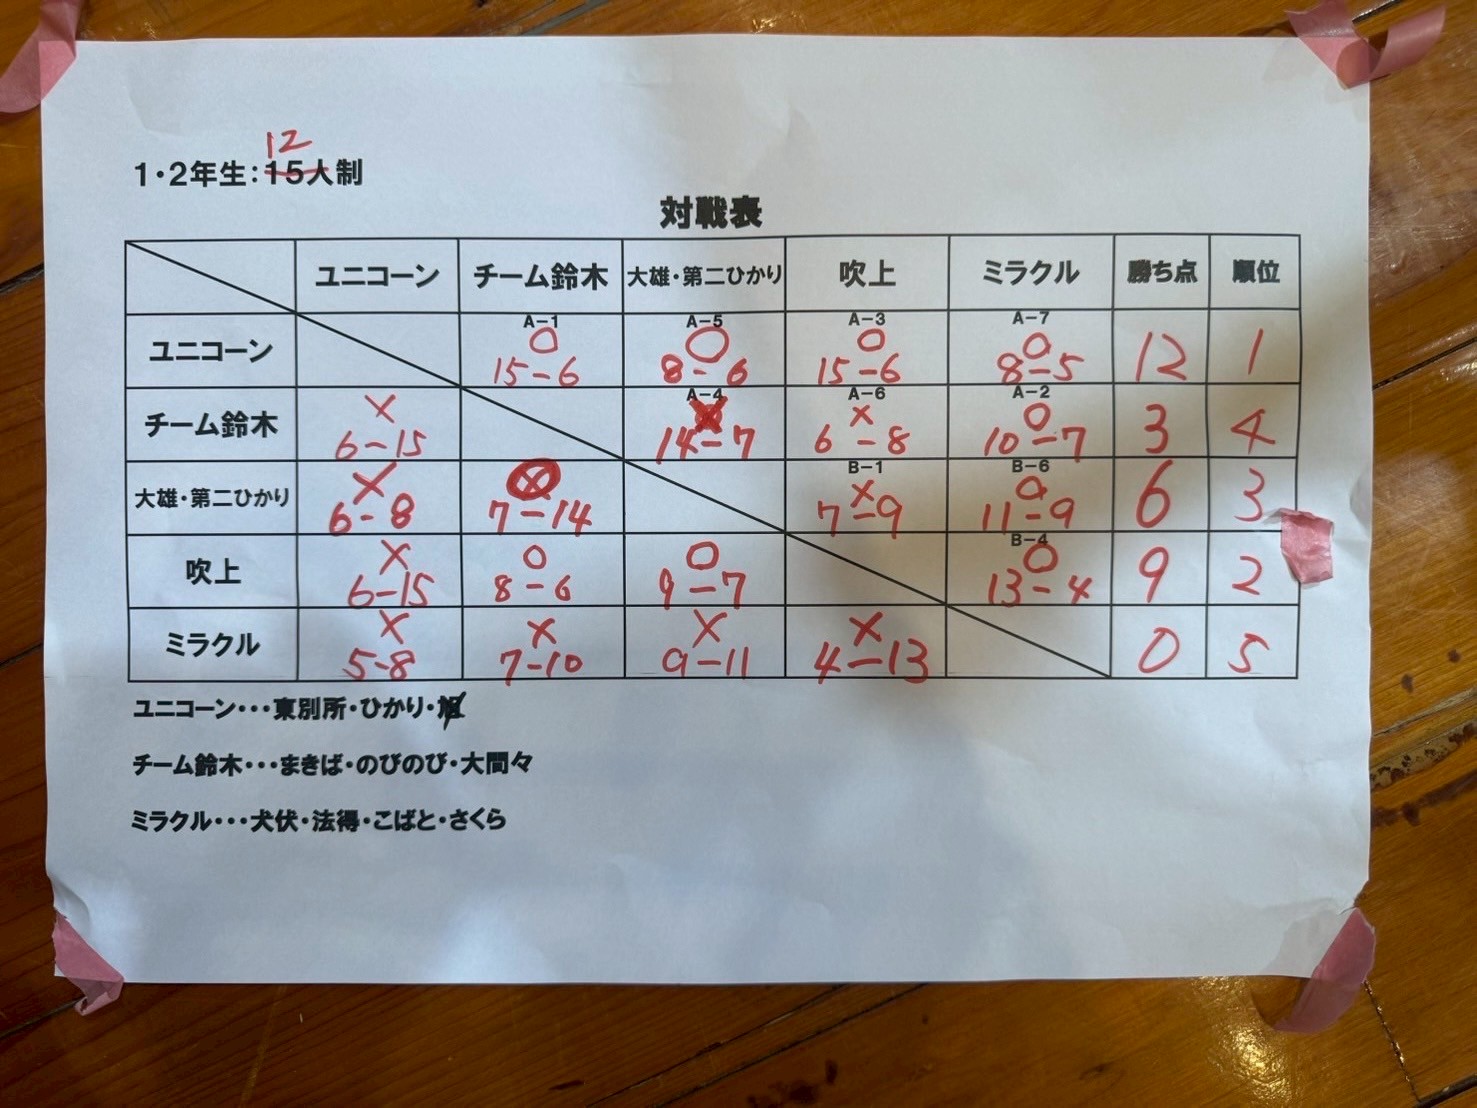 12
1・2年生：15人制
対戦表
ユニコーン チーム鈴木 大雄・第二ひかり 吹上 ミラクル 勝ち点 順位
A-1 A-5 A-3 A-7
ユニコーン ○ ○ ○ ○ 12 1
15-6 8-6 15-6 8-5
A-4 A-6 A-2
チーム鈴木 × × ○ 3 4
6-15 14-7 6-8 10-7
B-1 B-6
大雄・第二ひかり × × ○ 6 3
6-8 7-14 7-9 11-9
B-4
吹上 × ○ ○ ○ 9 2
6-15 8-6 9-7 13-4
ミラクル × × × × 0 5
5-8 7-10 9-11 4-13
ユニコーン・・・東別所・ひかり・
チーム鈴木・・・まきば・のびのび・大間々
ミラクル・・・犬伏・法得・こばと・さくら